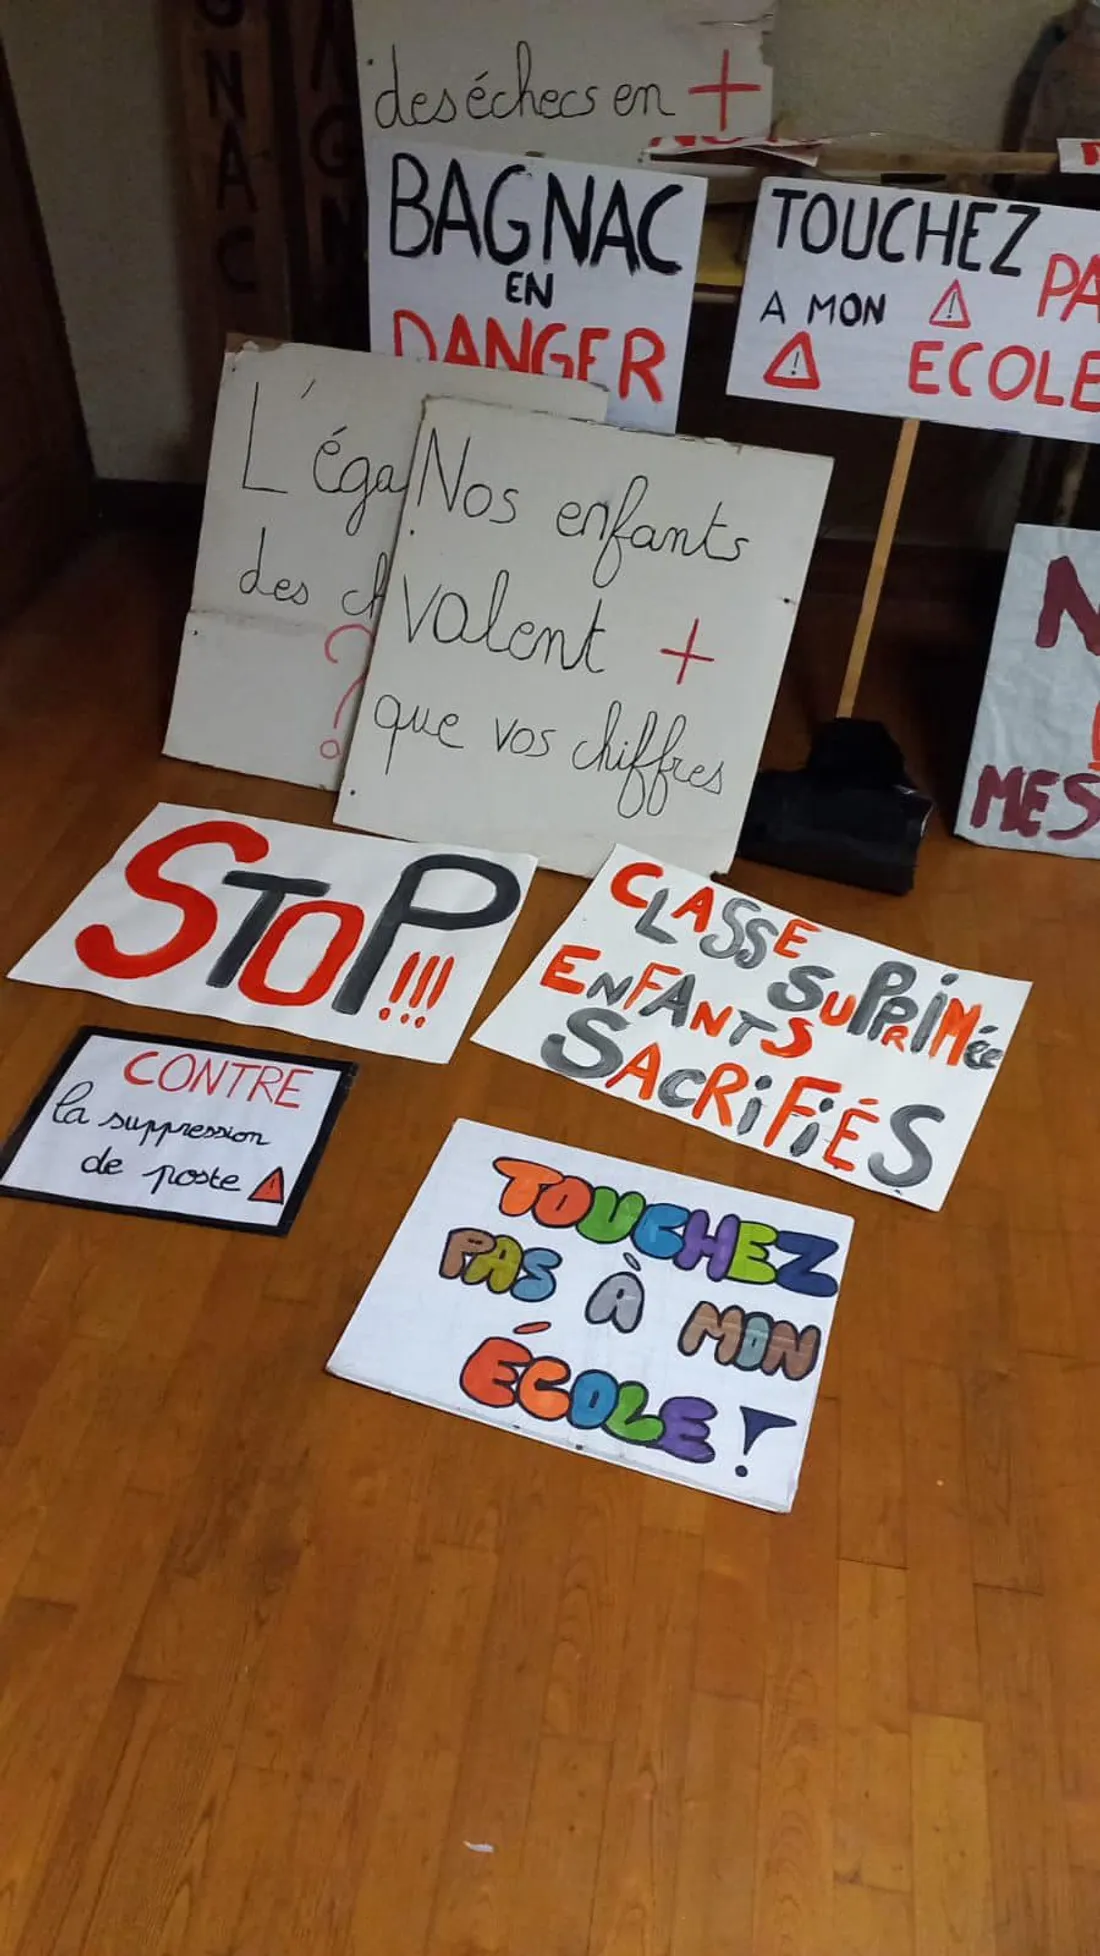 GNAC
AGN
des échecs en +
BAGNAC
EN
DANGER
TOUCHEZ
PA
A MON
ECOLE
L'éga
des ch
?
?
Nos enfants
valent +
que vos chiffres
N
MES
STOP!!!
CLASSE
SUPPRIMée
ENFANTS
SACRiFiÉS
CONTRE
la suppression
de poste
TOUCHEZ
PAS À MON
ÉCOLE!